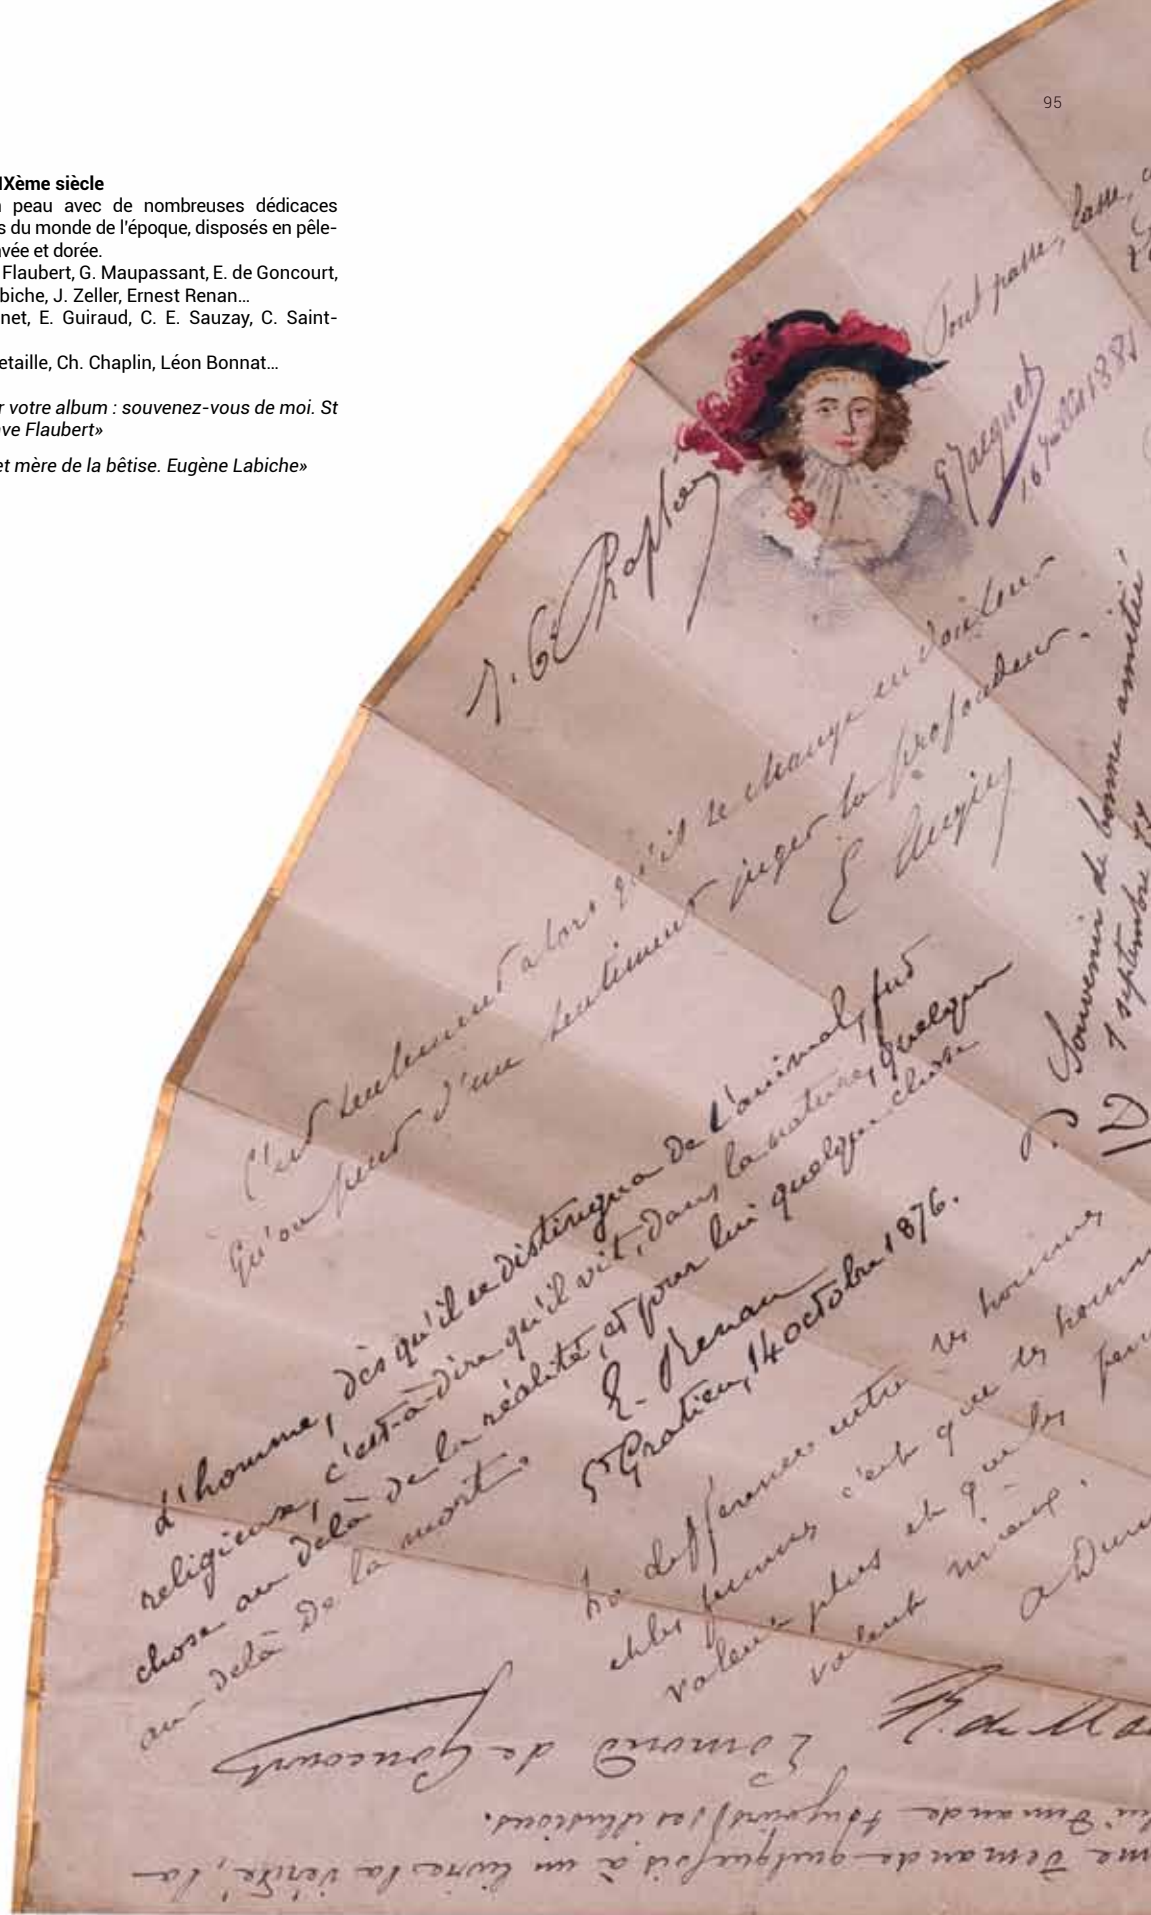 95
IXème siècle
peau avec de nombreuses dédicaces
s du monde de l'époque, disposés en pêle-
vée et dorée.
Flaubert, G. Maupassant, E. de Goncourt,
biche, J. Zeller, Ernest Renan...
net, E. Guiraud, C. E. Sauzay, C. Saint-
etaille, Ch. Chaplin, Léon Bonnat...
r votre album : souvenez-vous de moi. St
ve Flaubert»
et mère de la bêtise. Eugène Labiche»
Tout passe, lasse,
Jacquet
16 juillet 1881
C'est seulement alors qu'il se change en douleur
Qu'on peut d'un sentiment juger la profondeur.
E Augier
Souvenir de bonne amitié
septembre 77
L'homme, dès qu'il se distingua de l'animal, fut
religieux, c'est-à-dire qu'il vit, dans la nature, quelque
chose au delà de la réalité, et pour lui quelque chose
au delà de la mort.
E. Renan
St Gratien, 14 octobre 1876.
La différence entre les hommes
et les femmes c'est que les homm
valent plus et que les fem
valent mieux.
A Dum
Edmond de Goncourt
me demande quelquefois à un livre la vérité, la
lui demande toujours ses illusions.